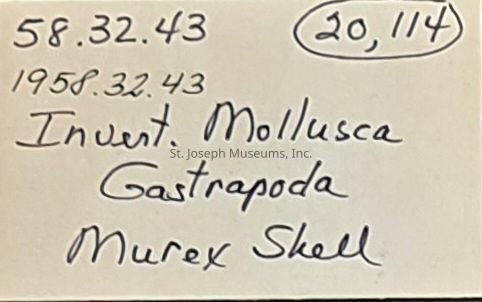 58.32.43 20,114
1958.32.43
Invert. Mollusca
St. Joseph Museums, Inc.
Gastrapoda
Murex Shell